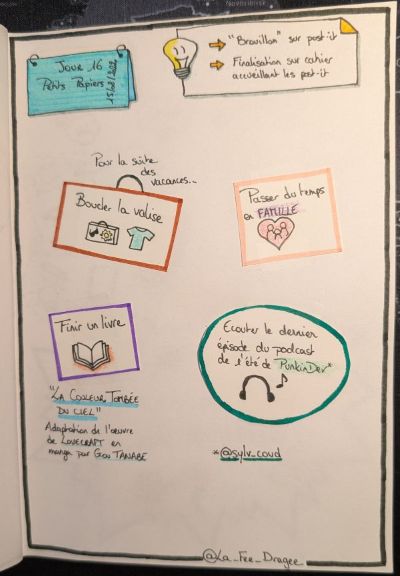 Jour 16
Petits Papiers
"Brouillon" sur post-it
Finalisation sur cahier
accueillant les post-it
Pour la suite
des
vacances...
Boucler la valise
Passer du temps
en FAMILLE
Finir un livre
"LA COULEUR TOMBÉE
DU CIEL"
Adaptation de l'œuvre
de LOVECRAFT en
manga par Gou TANABE
Ecouter le dernier
épisode du podcast
de l'été de PunkinDev*
*@sylv_coud
@La_Fee_Dragee